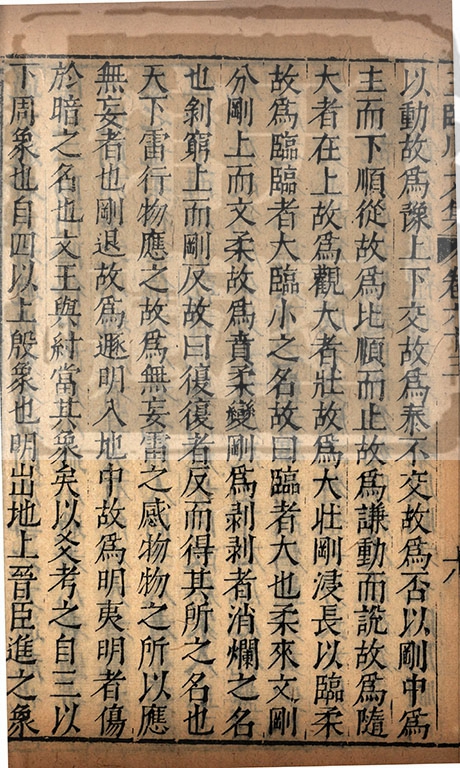 以動故爲豫上下交故爲泰不交故爲否以剛中爲
主而下順從故爲比順而止故爲謙動而說故爲隨
大者在上故爲觀大者壯故爲大壯剛浸長以臨柔
故爲臨臨者大臨小之名故曰臨者大也柔來文剛
分剛上而文柔故爲賁柔變剛爲剥剥者消爛之名
也剥窮上而剛反故曰復復者反而得其所之名也
天下雷行物應之故爲無妄雷之感物物之所以應
無妄者也剛退故爲遯明入地中故爲明夷明者傷
於暗之名也文王與紂當其象矣以爻考之自三以
下周象也自四以上殷象也明出地上晉臣進之象